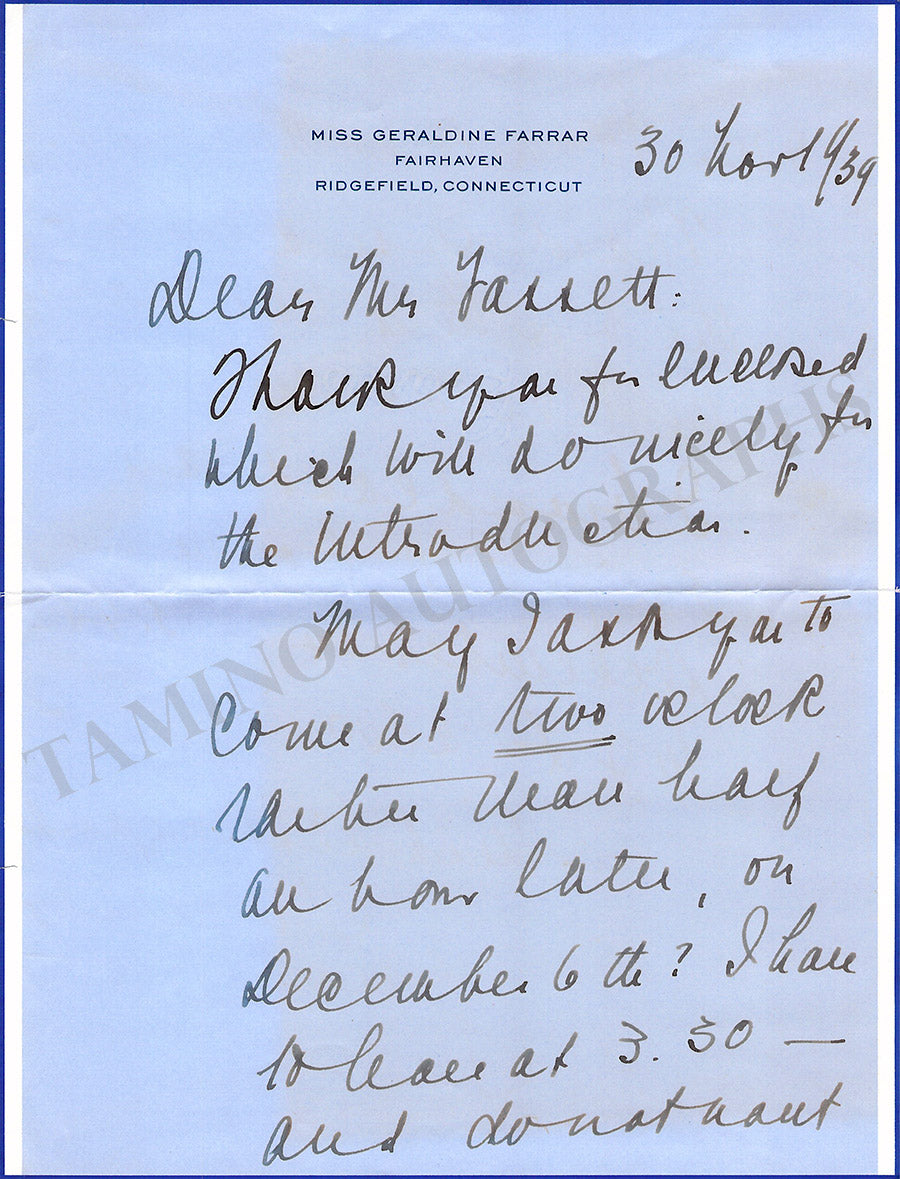 MISS GERALDINE FARRAR
FAIRHAVEN
RIDGEFIELD, CONNECTICUT
30 Nov 1939
Dear Mr Fassett:
Thank you for enclosed
which will do nicely for
the introduction.
May I ask you to
come at two oclock
rather than half
an hour later, on
December 6th? I have
to leave at 3.30 —
and do not want
TAMINO AUTOGRAPHS